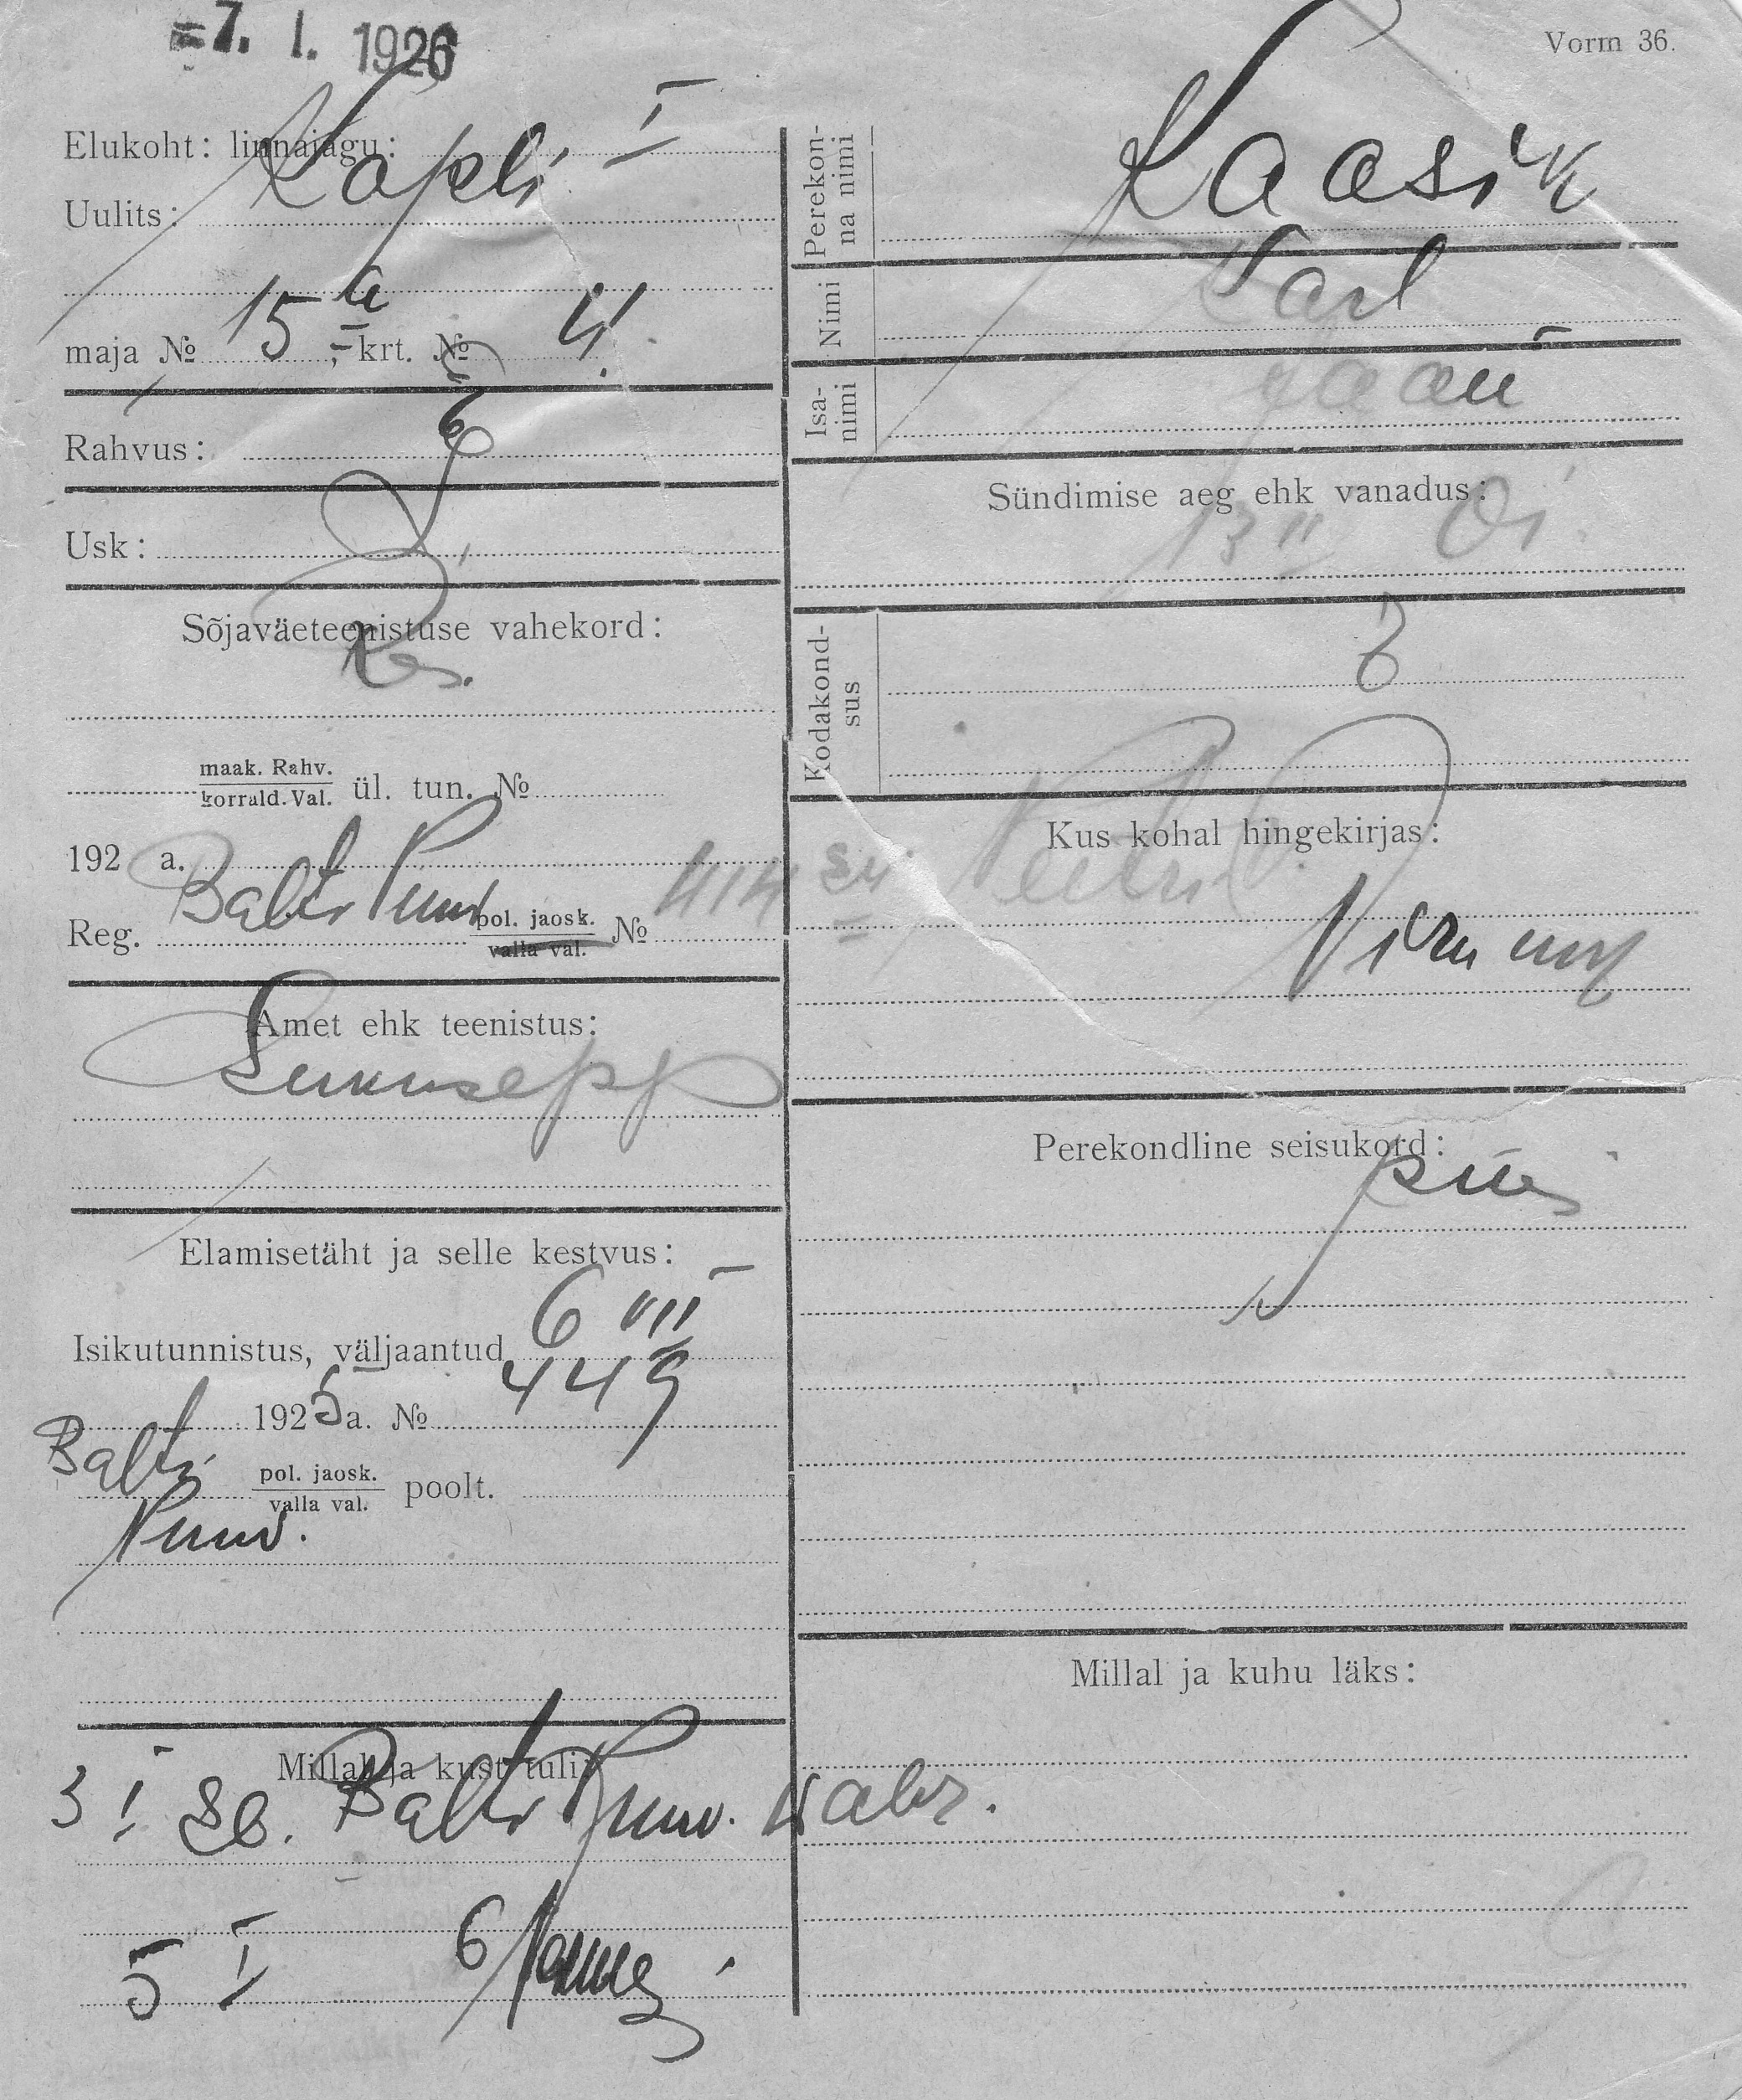 =7. I. 1926
Vorm 36.
Elukoht: linnajagu:
Kopli I
Uulits:
maja № 15 a, krt. № 4.
Rahvus: E
Usk: L
Sõjaväeteenistuse vahekord:
Res.
maak. Rahv.
korrald. Val. ül. tun. №
192 a.
Balti Puuv
Reg. pol. jaosk. № 414
valla val.
Amet ehk teenistus:
Lukusepp
Elamisetäht ja selle kestvus:
Isikutunnistus, väljaantud 6 VIII
1925 a. № 449
Balti
pol. jaosk.
valla val. poolt.
Puuv.
Millal ja kust tuli:
3 I 26. Balti Puuv. wabr.
5 I 6
Perekon-
na nimi
Kaasik
Nimi
Karl
Isa-
nimi
Jaan
Sündimise aeg ehk vanadus:
13 II 01.
Kodakond-
sus
E
Kus kohal hingekirjas:
Petri v.
Virumm
Perekondline seisukord:
Millal ja kuhu läks: